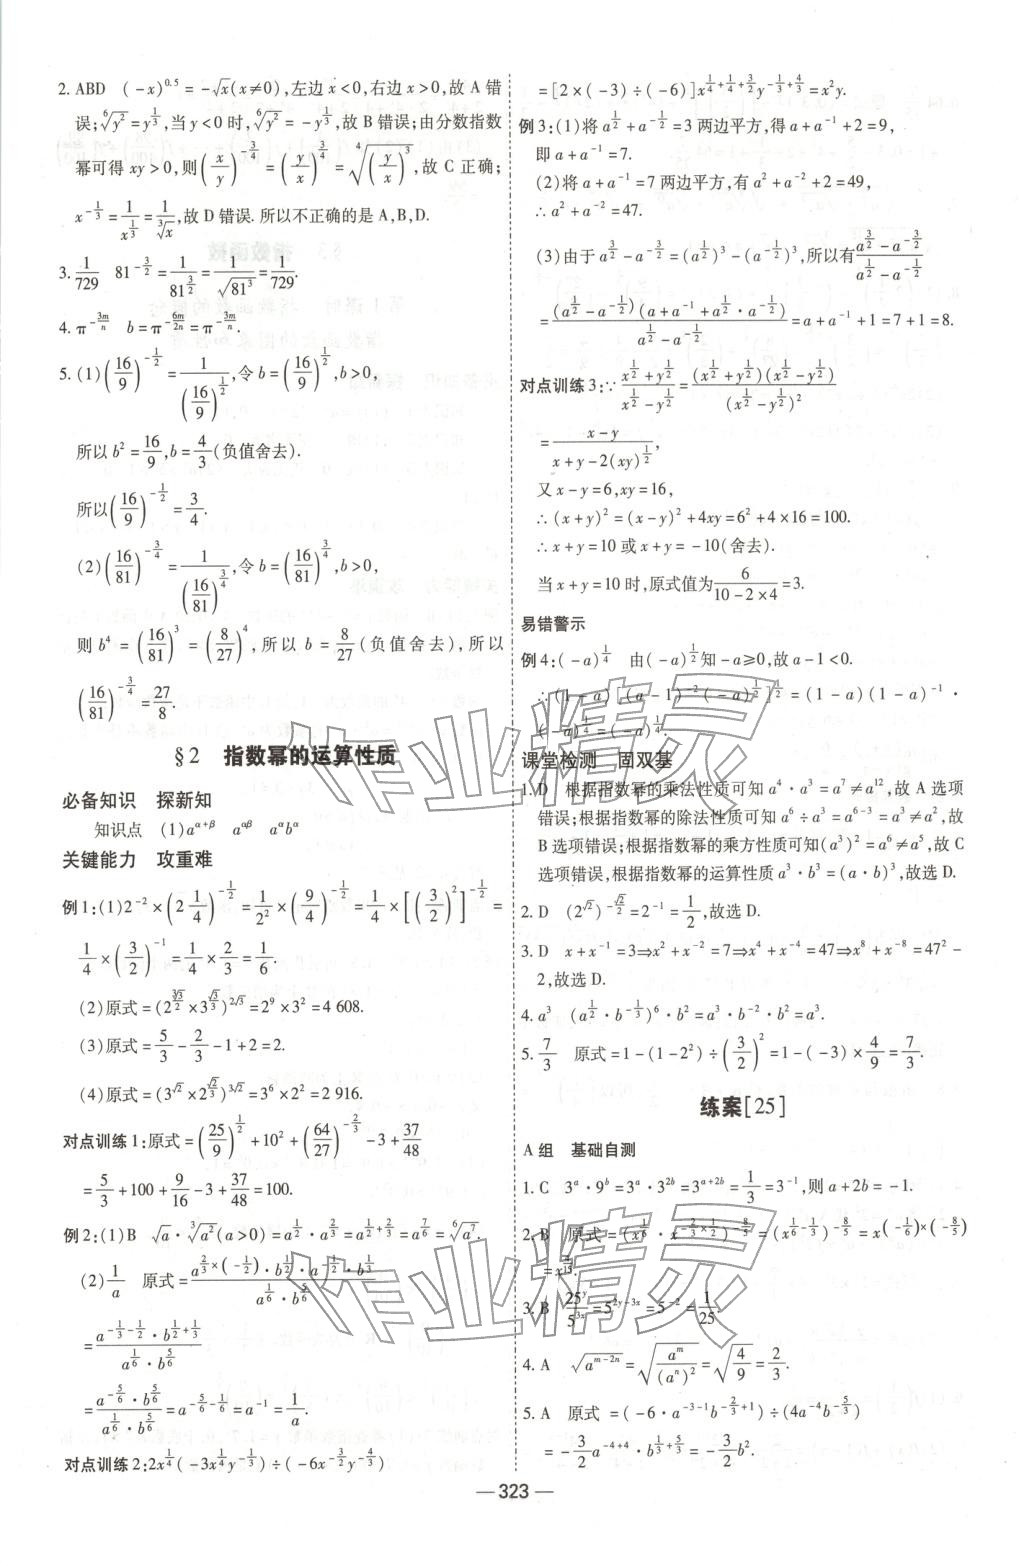 2. ABD (-x)^{0.5} = -√x(x≠0),左边 x<0,右边 x>0,故 A 错
误;⁶√y² = y^{1/3},当 y<0 时,⁶√y² = -y^{1/3},故 B 错误;由分数指数
幂可得 xy>0,则(x/y)^{-3/4} = (y/x)^{3/4} = ⁴√(y/x)³,故 C 正确;
x^{-1/3} = 1/x^{1/3} = 1/³√x,故 D 错误. 所以不正确的是 A,B,D.
3. 1/729 81^{-3/2} = 1/81^{3/2} = 1/√81³ = 1/729.
4. π^{-3m/n} b = π^{-6m/2n} = π^{-3m/n}.
5. (1)(16/9)^{-1/2} = 1/(16/9)^{1/2},令 b = (16/9)^{1/2},b>0,
所以 b² = 16/9,b = 4/3(负值舍去).
所以(16/9)^{-1/2} = 3/4.
(2)(16/81)^{-3/4} = 1/(16/81)^{3/4},令 b = (16/81)^{3/4},b>0,
则 b⁴ = (16/81)³ = (8/27)⁴,所以 b = 8/27(负值舍去),所以
(16/81)^{-3/4} = 27/8.
§2 指数幂的运算性质
必备知识 探新知
知识点 (1)a^{α+β} a^{αβ} a^αb^α
关键能力 攻重难
例1:(1)2^{-2}×(2 1/4)^{-1/2} = 1/2²×(9/4)^{-1/2} = 1/4×[(3/2)²]^{-1/2} =
1/4×(3/2)^{-1} = 1/4×2/3 = 1/6.
(2)原式 = (2^{√3/2}×3^{√3/3})^{2√3} = 2^9×3² = 4 608.
(3)原式 = 5/3 - 2/3 - 1+2 = 2.
(4)原式 = (3^{√2}×2^{√2/3})^{3√2} = 3⁶×2² = 2 916.
对点训练1:原式 = (25/9)^{1/2} + 10² + (64/27)^{-2/3} - 3 + 37/48
= 5/3 + 100 + 9/16 - 3 + 37/48 = 100.
例2:(1)B √a·³√a²(a>0) = a^{1/2}·a^{2/3} = a^{1/2+2/3} = a^{7/6} = ⁶√a⁷.
(2)1/a 原式 = a^{2/3×(-1/2)}·b^{1/2}·a^{-1/2}·b^{1/3}/a^{1/6}·b^{5/6}
= a^{-1/3-1/2}·b^{1/2+1/3}/a^{1/6}·b^{5/6}
= a^{-5/6}·b^{5/6}/a^{1/6}·b^{5/6} = a^{-5/6-1/6} = a^{-1} = 1/a.
对点训练2:2x^{1/4}(-3x^{1/4}y^{-1/3})÷(-6x^{-2/2}y^{-4/3})
= [2×(-3)÷(-6)]x^{1/4+1/4+2/2}y^{-1/3+4/3} = x²y.
例3:(1)将 a^{1/2}+a^{-1/2} = 3 两边平方,得 a+a^{-1}+2 = 9,
即 a+a^{-1} = 7.
(2)将 a+a^{-1} = 7 两边平方,有 a²+a^{-2}+2 = 49,
∴a²+a^{-2} = 47.
(3)由于 a^{3/2}-a^{-3/2} = (a^{1/2})³-(a^{-1/2})³,所以有 a^{3/2}-a^{-3/2}/a^{1/2}-a^{-1/2}
= (a^{1/2}-a^{-1/2})(a+a^{-1}+a^{1/2}·a^{-1/2})/a^{1/2}-a^{-1/2} = a+a^{-1}+1 = 7+1 = 8.
对点训练3:∵x^{1/2}+y^{1/2}/x^{1/2}-y^{1/2} = (x^{1/2}+y^{1/2})(x^{1/2}-y^{1/2})/(x^{1/2}-y^{1/2})²
= x-y/x+y-2(xy)^{1/2},
又 x-y = 6,xy = 16,
∴(x+y)² = (x-y)²+4xy = 6²+4×16 = 100.
∴x+y = 10 或 x+y = -10(舍去).
当 x+y = 10 时,原式值为 6/10-2×4 = 3.
易错警示
例4:(-a)^{1/4} 由(-a)^{1/2}知 -a≥0,故 a-1<0.
∴(1-a)[(a-1)^{-2}(-a)^{1/2}]^{1/2} = (1-a)(1-a)^{-1}·
(-a)^{1/4} = (-a)^{1/4}.
课堂检测 固双基
1. D 根据指数幂的乘法性质可知 a⁴·a³ = a⁷≠a^{12},故 A 选项
错误;根据指数幂的除法性质可知 a⁶÷a³ = a^{6-3} = a³≠a²,故
B 选项错误;根据指数幂的乘方性质可知(a³)² = a⁶≠a⁵,故 C
选项错误,根据指数幂的运算性质 a³·b³ = (a·b)³,故选 D.
2. D (2^{√2})^{-√2/2} = 2^{-1} = 1/2,故选 D.
3. D x+x^{-1} = 3⇒x²+x^{-2} = 7⇒x⁴+x^{-4} = 47⇒x⁸+x^{-8} = 47²-
2,故选 D.
4. a³ (a^{1/2}·b^{-1/3})⁶·b² = a³·b^{-2}·b² = a³.
5. 7/3 原式 = 1-(1-2²)÷(3/2)² = 1-(-3)×4/9 = 7/3.
练案[25]
A 组 基础自测
1. C 3^a·9^b = 3^a·3^{2b} = 3^{a+2b} = 1/3 = 3^{-1},则 a+2b = -1.
2. B 原式 = (x^{1/6}·x^{-2/3×1/2})^{-8/5} = (x^{1/6-1/3})^{-8/5} = x^{(-1/6)×(-8/5)}
= x^{4/15}.
3. B 25^y/5^{3x} = 5^{2y-3x} = 5^{-2} = 1/25.
4. A √a^{m-2n} = √a^m/(a^n)² = √4/9 = 2/3.
5. A 原式 = (-6·a^{-3-1}b^{-2/3+1})÷(4a^{-4}b^{-5/3})
= -3/2a^{-4+4}·b^{1/3+5/3} = -3/2b².
— 323 —
作业精灵
作业精灵